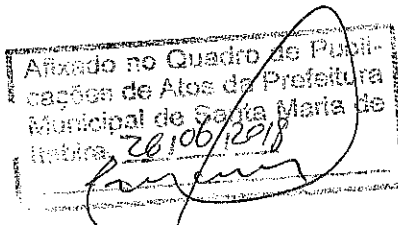 Afixado no Quadro de Publi-
cações de Atos da Prefeitura
Municipal de Santa Maria de
Itabira, 26/06/2018